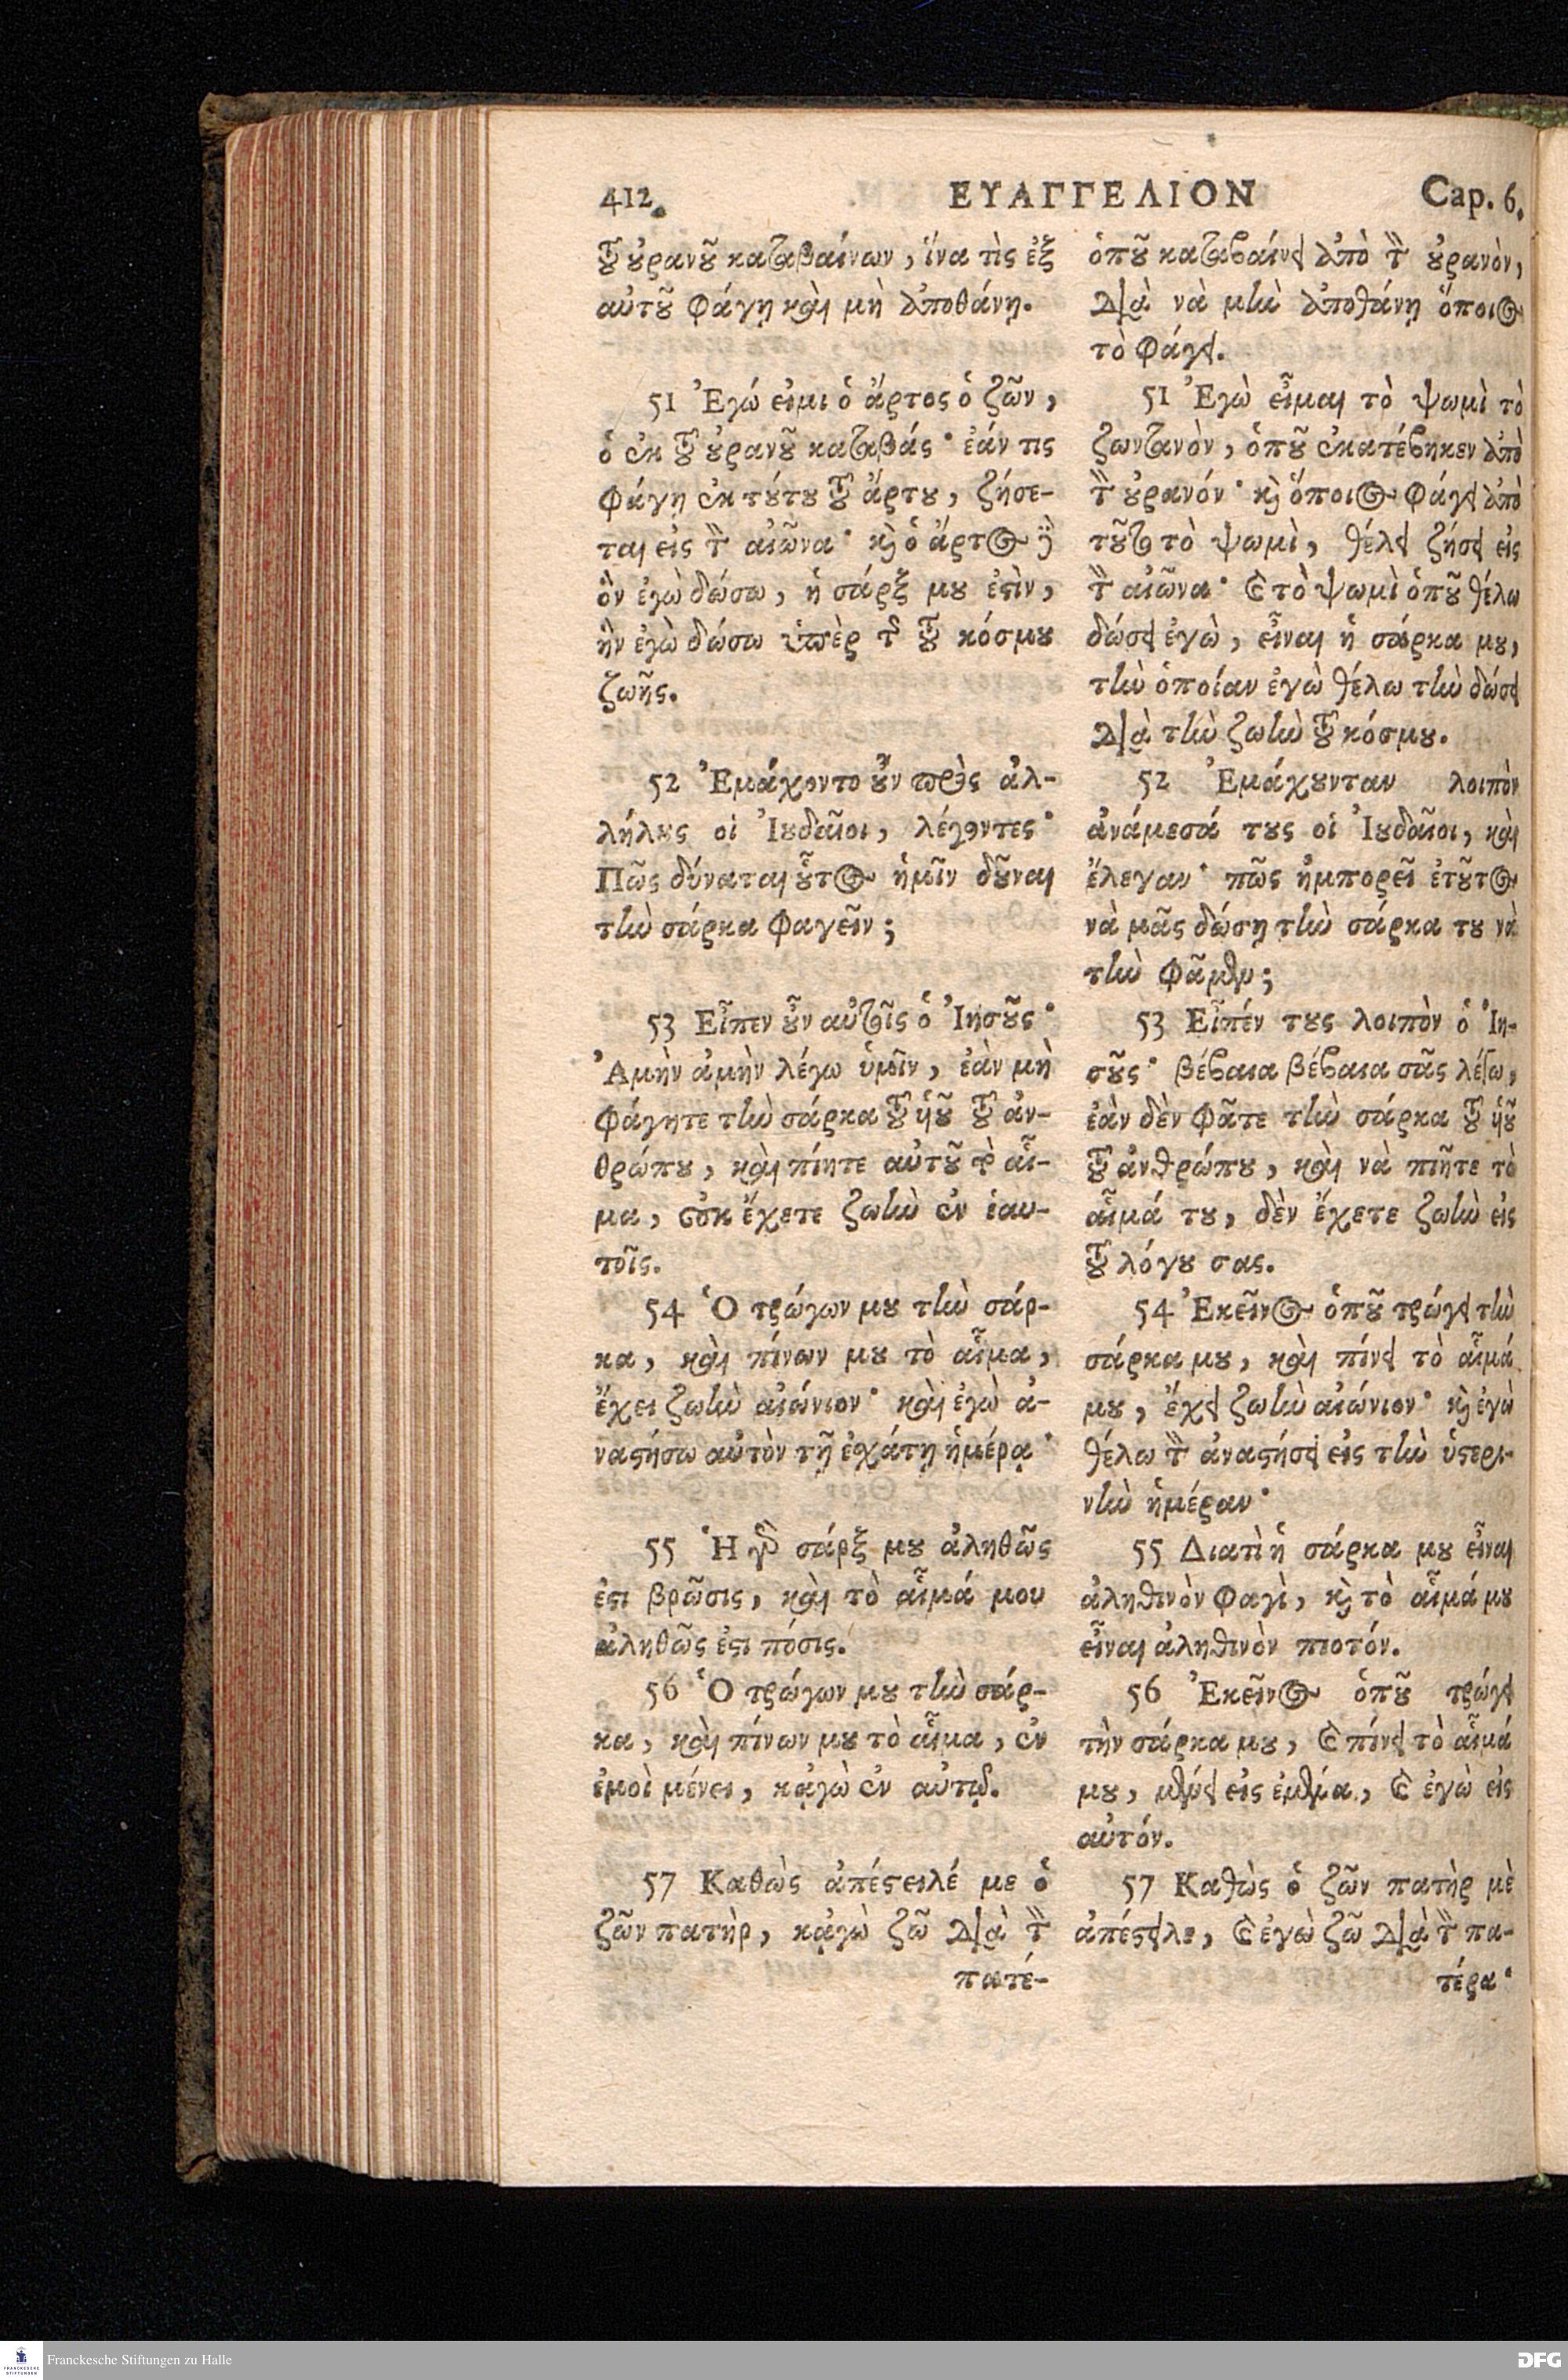 412 ΕΥΑΓΓΕΛΙΟΝ Cap. 6.
τȣ͂ ȣ̓ρανȣ͂ καταβαίνων, ἵνα τὶς ἐξ
αὐτȣ͂ φάγῃ καὶ μὴ ἀποθάνῃ.
51 Ἐγώ εἰμι ὁ ἄρτος ὁ ζῶν,
ὁ ἐκ τȣ͂ ȣ̓ρανȣ͂ καταβάς· ἐάν τις
φάγῃ ἐκ τȣ́τȣ τȣ͂ ἄρτȣ, ζήσε-
ται εἰς τ̀ αἰῶνα· κ̀ ὁ ἄρτος δὲ
ὃν ἐγὼ δώσω, ἡ σάρξ μȣ ἐϛὶν,
ἣν ἐγὼ δώσω ὑπὲρ τ͂ τȣ͂ κόσμȣ
ζωῆς.
52 Ἐμάχοντο ȣ̓͂ν πρὸς ἀλ-
λήλȣς οἱ Ἰȣδαῖοι, λέγοντες·
Πῶς δύναται ȣ̔͂τος ἡμῖν δȣ͂ναι
τὴν σάρκα φαγεῖν;
53 Εἶπεν ȣ̓͂ν αὐτοῖς ὁ Ἰησȣ͂ς·
Ἀμὴν ἀμὴν λέγω ὑμῖν, ἐὰν μὴ
φάγητε τὴν σάρκα τȣ͂ ὑȣ͂ τȣ͂ ἀν-
θρώπȣ, καὶ πίητε αὐτȣ͂ τὸ αἷ-
μα, οὐκ ἔχετε ζωὴν ἐν ἑαυ-
τοῖς.
54 Ὁ τρώγων μȣ τὴν σάρ-
κα, καὶ πίνων μȣ τὸ αἷμα,
ἔχει ζωὴν αἰώνιον· καὶ ἐγὼ ἀ-
ναϛήσω αὐτὸν τῇ ἐχάτῃ ἡμέρᾳ·
55 Ἡ γὰρ σάρξ μȣ ἀληθῶς
ἐϛι βρῶσις, καὶ τὸ αἷμά μου
ἀληθῶς ἐϛι πόσις.
56 Ὁ τρώγων μȣ τὴν σάρ-
κα, καὶ πίνων μȣ τὸ αἷμα, ἐν
ἐμοὶ μένει, κᾀγὼ ἐν αὐτῷ.
57 Καθὼς ἀπέϛειλέ με ὁ
ζῶν πατὴρ, κᾀγὼ ζῶ διὰ τ̀
πατέ-
ὁπȣ͂ καταβαίνει ἀπὸ τ̀ ȣ̓ρανὸν,
διὰ νὰ μὴν ἀποθάνῃ ὅποιος
τὸ φάγει.
51 Ἐγὼ εἶμαι τὸ ψωμὶ τὸ
ζωντανὸν, ὁπȣ͂ ἐκατέβηκεν ἀπὸ
τ̀ ȣ̓ρανόν· κ̀ ὅποιος φάγει ἀπὸ
τȣ͂το τὸ ψωμὶ, θέλει ζήσει εἰς
τ̀ αἰῶνα· καὶ τὸ ψωμὶ ὁπȣ͂ θέλω
δώσει ἐγὼ, εἶναι ἡ σάρκα μȣ,
τὴν ὁποίαν ἐγὼ θέλω τὴν δώσει
διὰ τὴν ζωὴν τȣ͂ κόσμȣ.
52 Ἐμάχȣνταν λοιπὸν
ἀνάμεσά τȣς οἱ Ἰȣδαῖοι, καὶ
ἔλεγαν· πῶς ἠμπορεῖ ἐτȣ͂τος
νὰ μᾶς δώσῃ τὴν σάρκα τȣ νὰ
τὴν φᾶμεν;
53 Εἶπέν τȣς λοιπὸν ὁ Ἰη-
σȣ͂ς· βέβαια βέβαια σᾶς λέγω,
ἐὰν δὲν φᾶτε τὴν σάρκα τȣ͂ ὑȣ͂
τȣ͂ ἀνθρώπȣ, καὶ νὰ πιῆτε τὸ
αἷμά τȣ, δὲν ἔχετε ζωὴν εἰς
τȣ͂ λόγȣ σας.
54 Ἐκεῖνος ὁπȣ͂ τρώγει τὴν
σάρκα μȣ, καὶ πίνει τὸ αἷμά
μȣ, ἔχει ζωὴν αἰώνιον· κ̀ ἐγὼ
θέλω τ̀ ἀναϛήσει εἰς τὴν ὑϛερι-
νὴν ἡμέραν·
55 Διατὶ ἡ σάρκα μȣ εἶναι
ἀληθινὸν φαγὶ, κ̀ τὸ αἷμά μȣ
εἶναι ἀληθινὸν πιοτόν.
56 Ἐκεῖνος ὁπȣ͂ τρώγει
τὴν σάρκα μȣ, καὶ πίνει τὸ αἷμά
μȣ, μένει εἰς ἐμένα, καὶ ἐγὼ εἰς
αὐτόν.
57 Καθὼς ὁ ζῶν πατὴρ μὲ
ἀπέϛειλε, καὶ ἐγὼ ζῶ διὰ τ̀ πα-
τέρα·
FRANCKESCHE STIFTUNGEN
Franckesche Stiftungen zu Halle
DFG